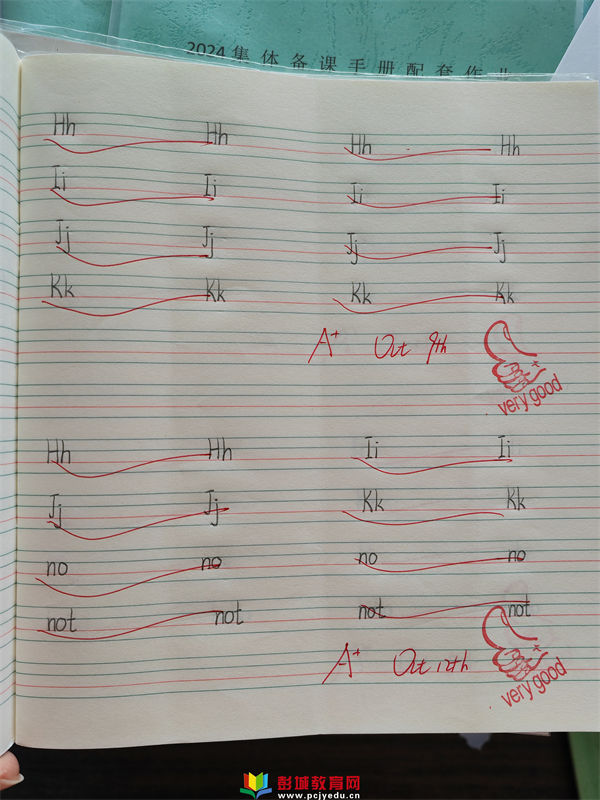 2024集体备课手册配套作业
Hh Hh Hh Hh
Ii Ii Ii Ii
Jj Jj Jj Jj
Kk Kk Kk Kk
A+ Oct 9th
very good
Hh Hh Ii Ii
Jj Jj Kk Kk
no no no no
not not not not
A+ Oct 12th
very good
彭城教育网
www.pcjyedu.cn